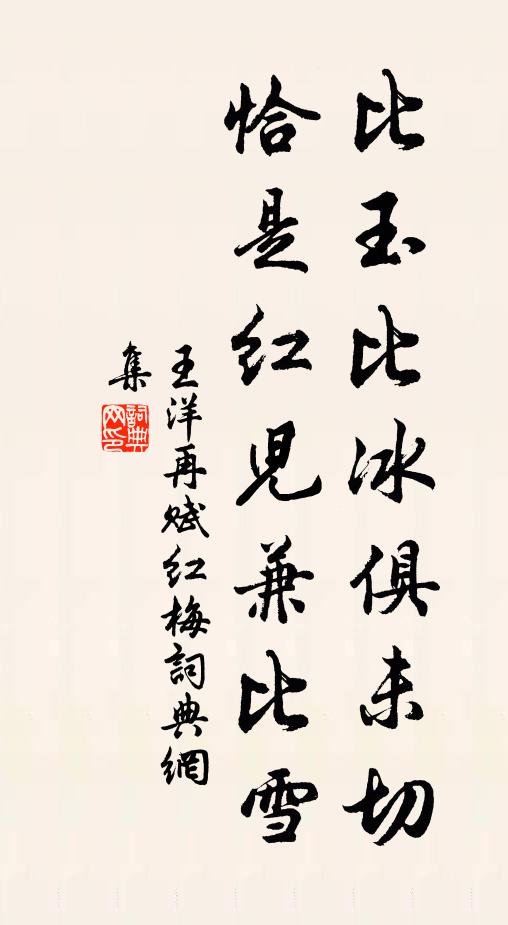 比玉比冰俱未切
恰是红児兼比雪
王洋再赋红梅詞典網
集
詞典
网印